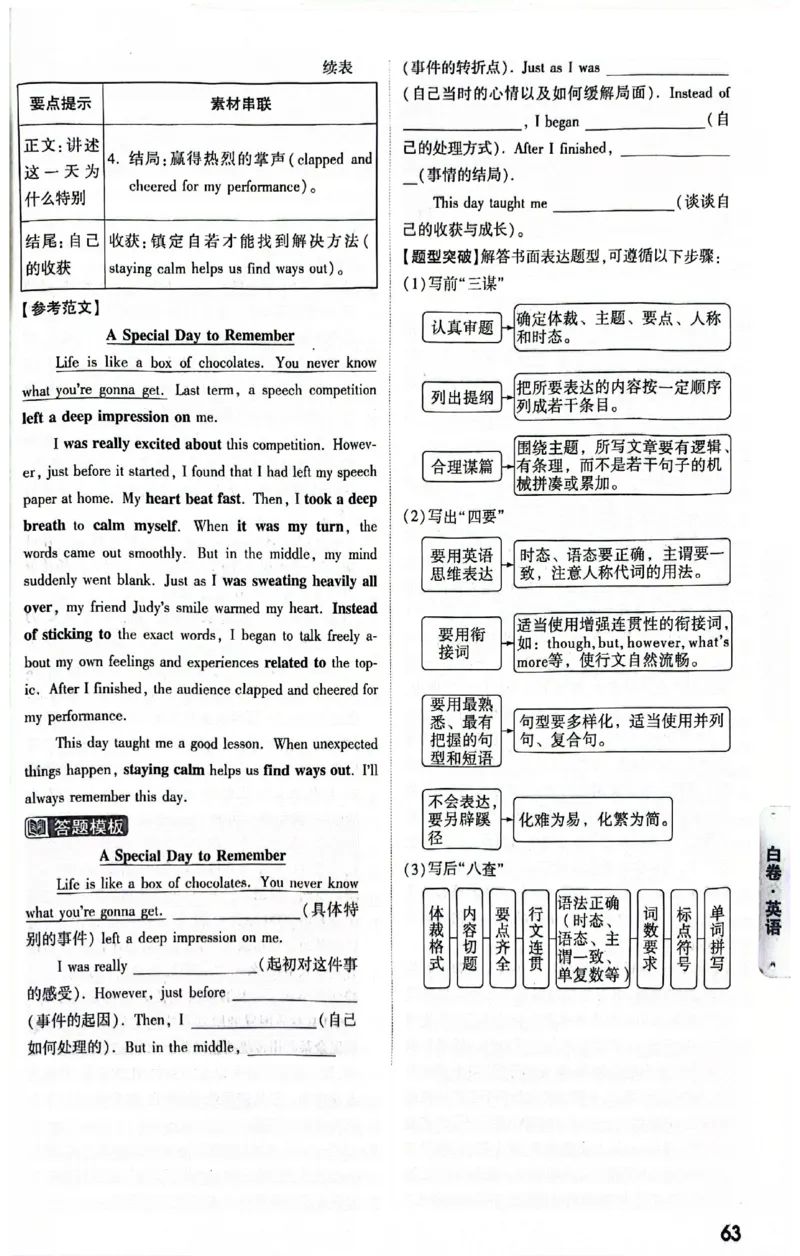 续表
要点提示 素材串联
正文:讲述
这一天为
什么特别
4. 结局:赢得热烈的掌声(clapped and
cheered for my performance)。
结尾:自己
的收获
收获:镇定自若才能找到解决方法(
staying calm helps us find ways out)。
【参考范文】
A Special Day to Remember
Life is like a box of chocolates. You never know
what you're gonna get. Last term, a speech competition
left a deep impression on me.
I was really excited about this competition. Howev-
er, just before it started, I found that I had left my speech
paper at home. My heart beat fast. Then, I took a deep
breath to calm myself. When it was my turn, the
words came out smoothly. But in the middle, my mind
suddenly went blank. Just as I was sweating heavily all
over, my friend Judy's smile warmed my heart. Instead
of sticking to the exact words, I began to talk freely a-
bout my own feelings and experiences related to the top-
ic. After I finished, the audience clapped and cheered for
my performance.
This day taught me a good lesson. When unexpected
things happen, staying calm helps us find ways out. I'll
always remember this day.
答题模板
A Special Day to Remember
Life is like a box of chocolates. You never know
what you're gonna get. ____________(具体特
别的事件) left a deep impression on me.
I was really ____________(起初对这件事
的感受). However, just before ____________
(事件的起因). Then, I ____________(自己
如何处理的). But in the middle, ____________
(事件的转折点). Just as I was ____________
(自己当时的心情以及如何缓解局面). Instead of
____________, I began ____________(自
己的处理方式). After I finished, ____________
__(事情的结局).
This day taught me ____________(谈谈自
己的收获与成长)。
【题型突破】解答书面表达题型,可遵循以下步骤:
(1)写前“三谋”
认真审题
确定体裁、主题、要点、人称
和时态。
列出提纲
把所要表达的内容按一定顺序
列成若干条目。
合理谋篇
围绕主题，所写文章要有逻辑、
有条理，而不是若干句子的机
械拼凑或累加。
(2)写出“四要”
要用英语
思维表达
时态、语态要正确，主谓要一
致，注意人称代词的用法。
要用衔
接词
适当使用增强连贯性的衔接词，
如：though,but,however,what's
more等，使行文自然流畅。
要用最熟
悉、最有
把握的句
型和短语
句型要多样化，适当使用并列
句、复合句。
不会表达，
要另辟蹊
径
化难为易，化繁为简。
(3)写后“八查”
体裁格式
内容切题
要点齐全
行文连贯
语法正确
(时态、
语态、主
谓一致、
单复数等)
词数要求
标点符号
单词拼写
白卷·英语
63